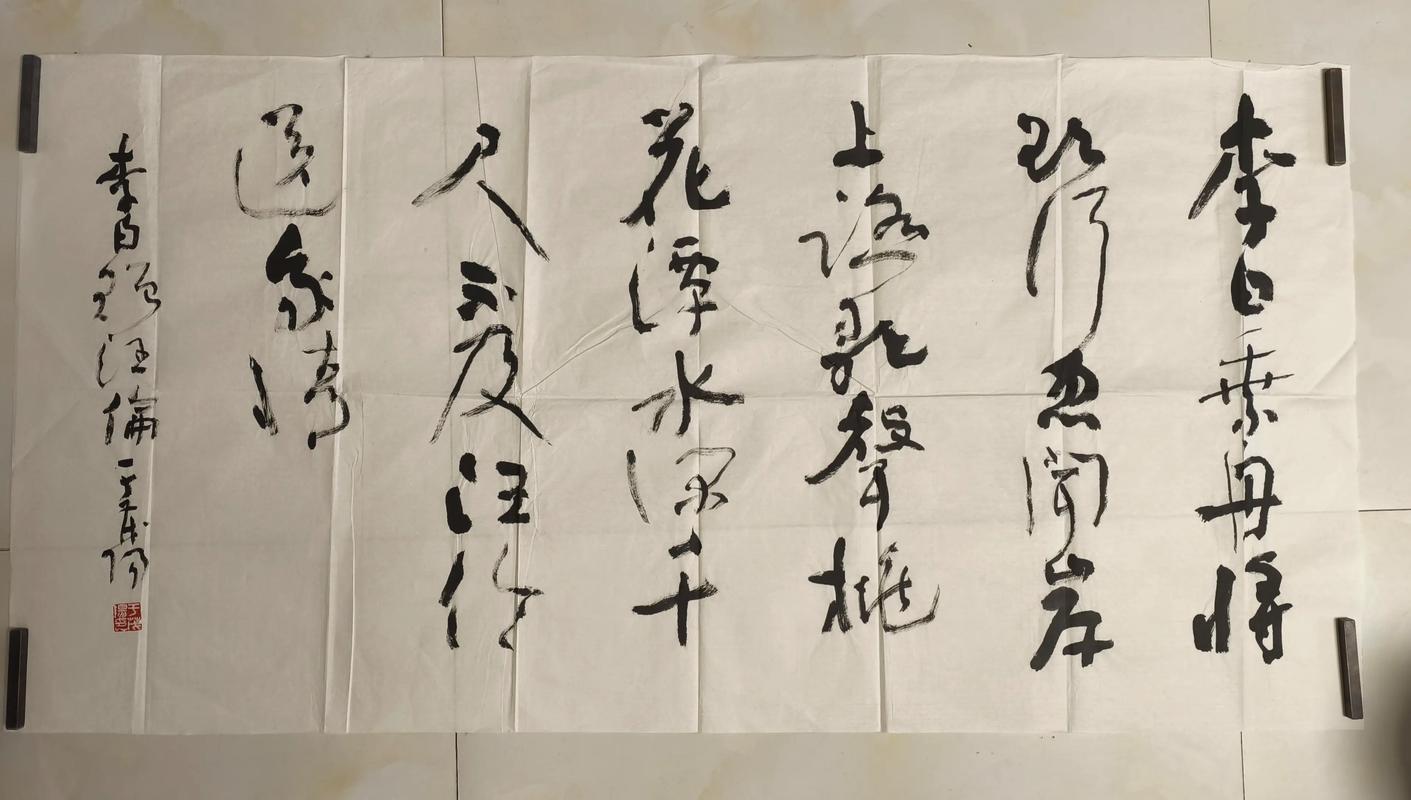 李白乘舟將
欲行忽聞岸
上踏歌聲桃
花潭水深千
尺不及汪伦
送我情
李白贈汪倫 于茂陽